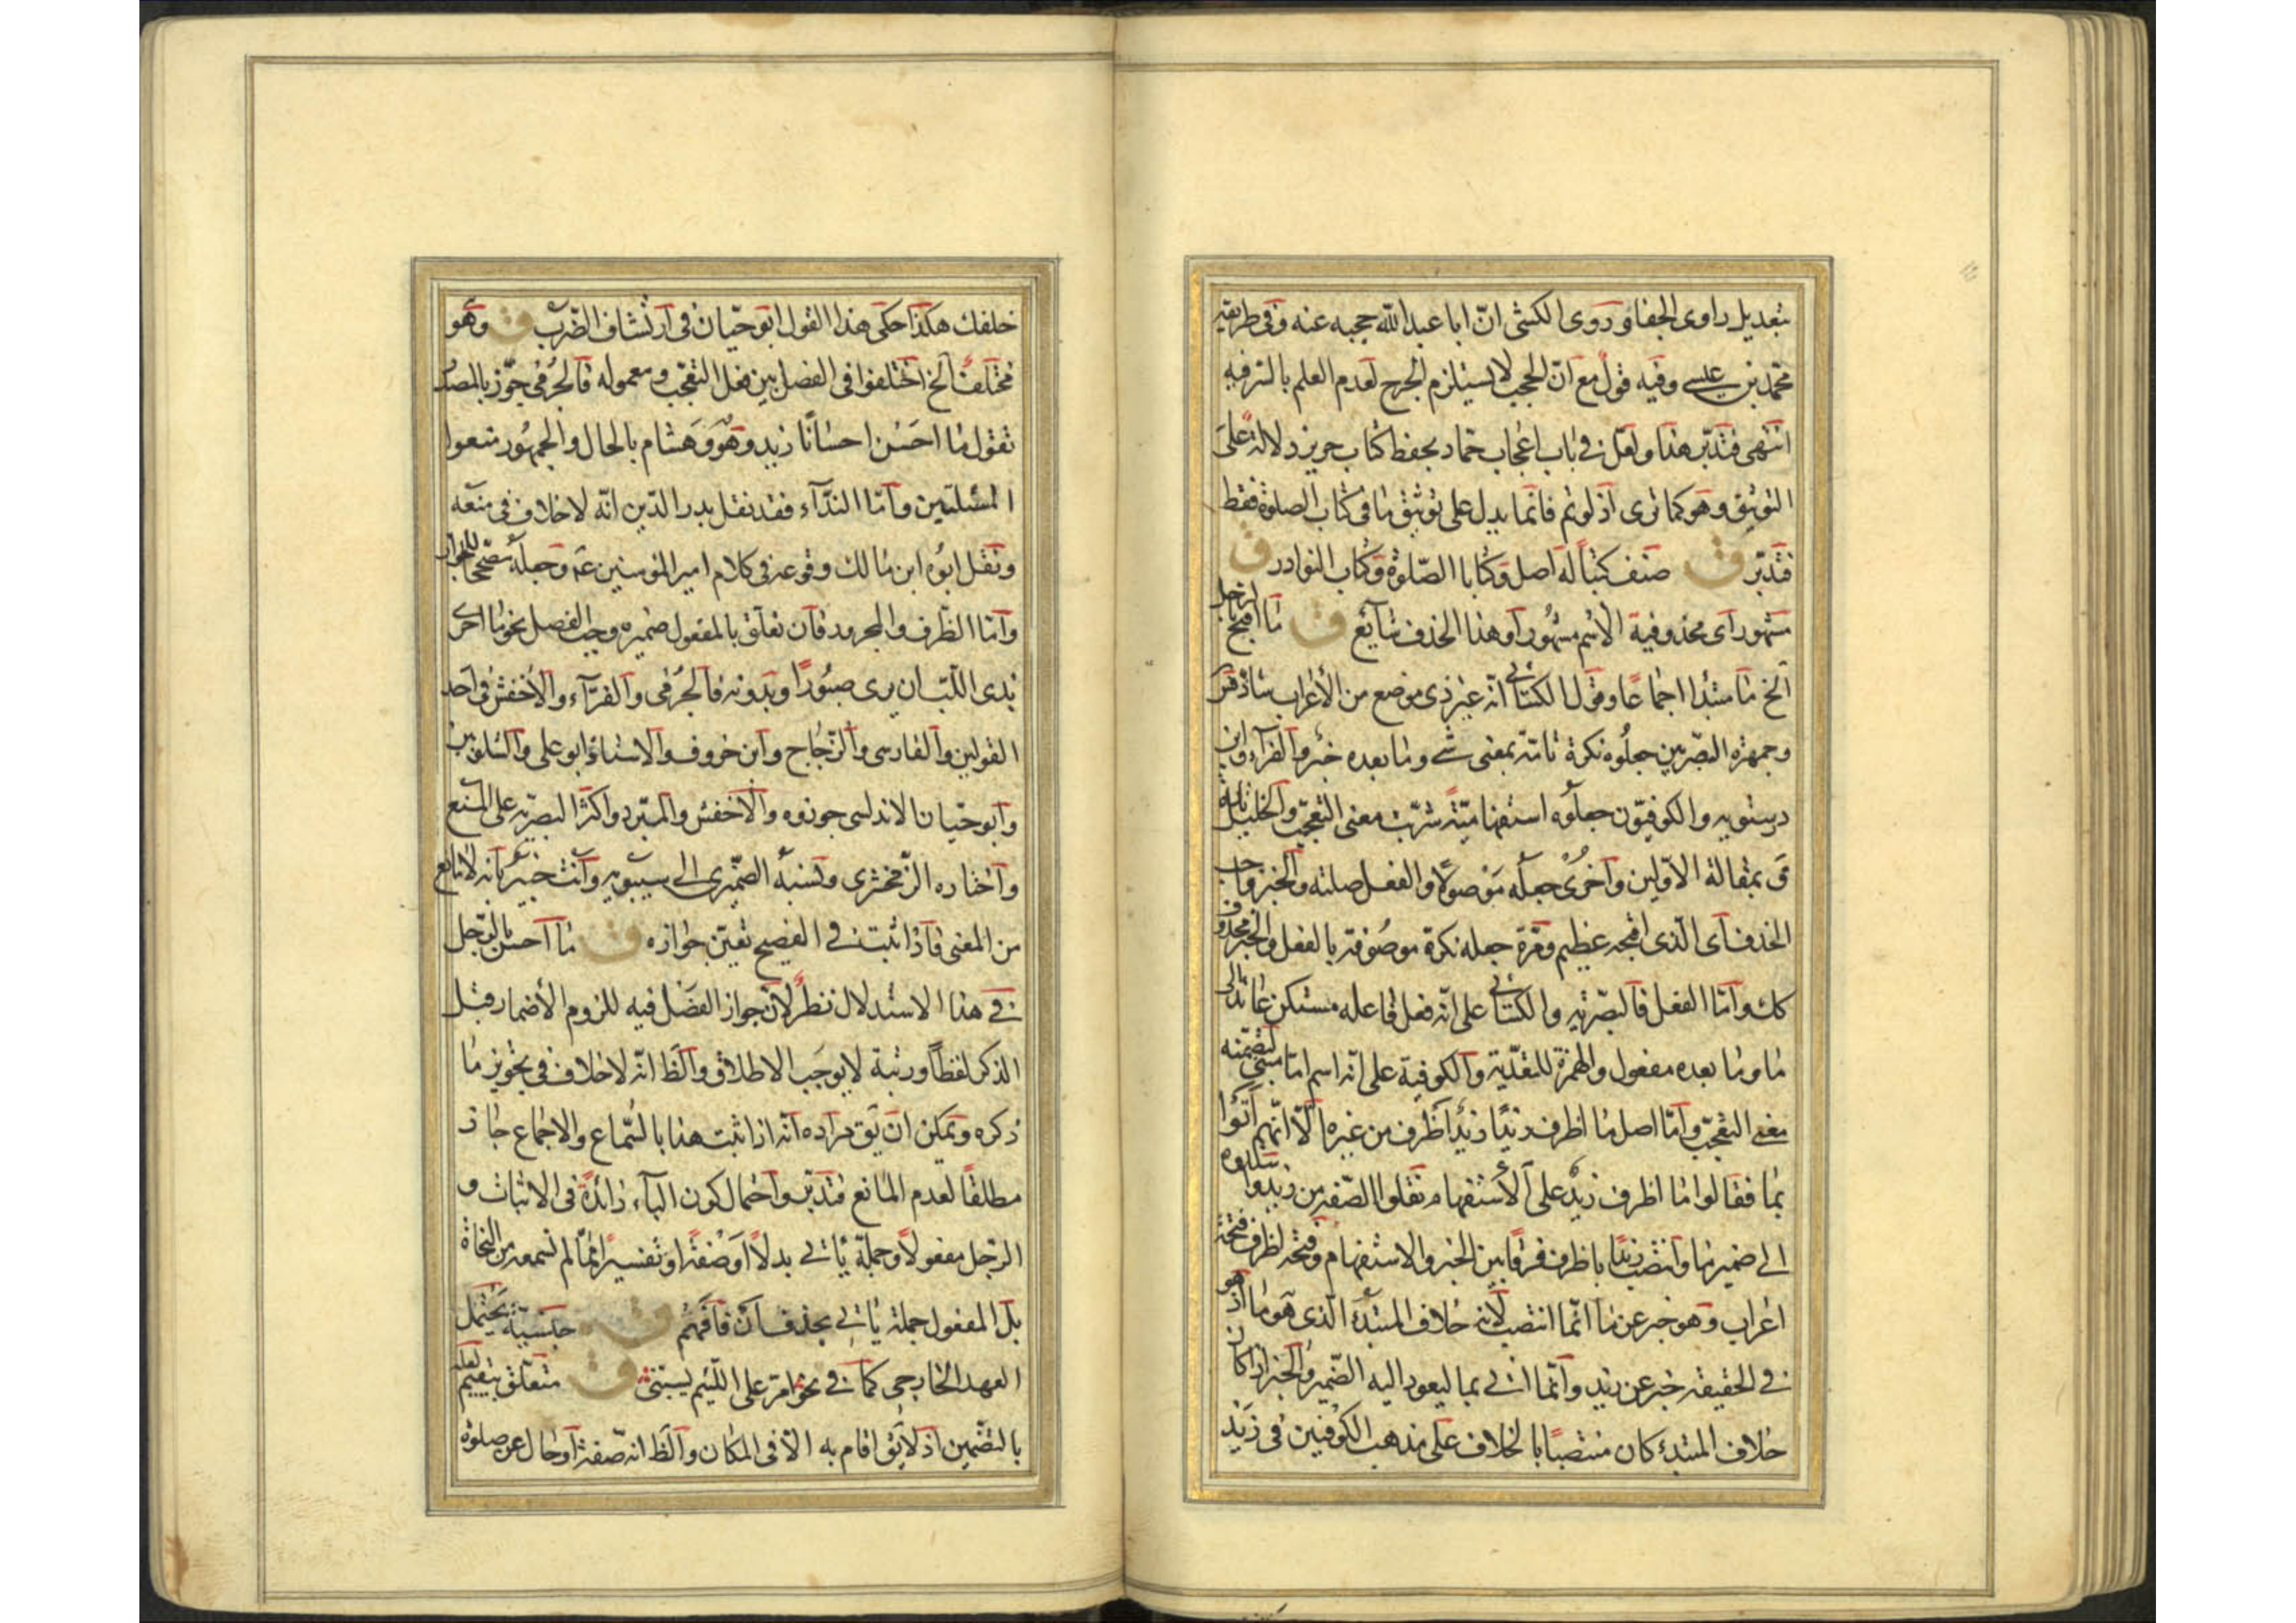 بتعديل راوى الجفا وروى الكشى انّ ابا عبدالله حجبه عنه وفى طريقه
محمّد بن عيسى وفيه قول مع انّ الحجب لا يستلزم الجرح لعدم العلم بالسّر فيه
انتهى فتدبّر هذا ولعل فى باب اعجاب حماد بحفظ كتاب حريز دلالة على
التوثيق وهو كما ترى اذ لو تم فانما يدل على توثيق ما فى كتاب الصلوة فقط
فتدبّر ق صنف كتباً له اصل وكتابا الصّلوة وكتاب النوادر ق
مشهور اى محذوفية الاسم مشهور او هذا الحذف شايع ق ما اقبح بالرجل
الخ ما مبتدا اجماعًا وقول الكسائى انّه غير ذى موضع من الأعراب شاذ فسر
وجمهرة البصريين جعلوه نكرة تامّة بمعنى شئ وما بعده خبر والفراء وابن
درستويه والكوفيّون جعلوه استفهاميّة شربت معنى التعجّب والخليل
ق بمقالة الاوّلين واخرى جعله موصولًا والفعل صلته والخبر واجب
الحذف اى الّذى اقبحه عظيم ومرّة جعله نكرة موصوفة بالفعل والخبر محذوف
كك وامّا الفعل فالبصريّة والكسائى على انّه فعل فاعله مستكن عائد الى
ما وما بعده مفعول والهمزة للتعدّية والكوفية على انّه اسم امّا مبنى لتضمّنه
معنى التعجّب وامّا اصل ما اظرف زيدًا زيدٌ اظرف من غيره الّا انّهم اتوا
بما فقالوا ما اظرف زيدٌ على الأستفهام ثم نقلوا الصّفة من زيد واسندوه
الى ضمير ما وانتصب زيدًا باظرف فرقًا بين الخبر والاستفهام وفتحة اظرف فتحة
اعراب وهو خبر عن ما انّما انتصب لانه خلاف المبتدأ الّذى هو ما اذ هو
فى الحقيقة خبر عن زيد وانّما اتى بما ليعود اليه الضّمير والخبر اذا كان
خلاف المبتدء كان منتصبًا بالخلاف على مذهب الكوفيين فى زيد
خلفك هكذا حكى هذا القول ابوحيّان فى ارتشاف الضّرب ق وهو
مختلف الخ اختلفوا فى الفصل بين فعل التعجّب ومعموله فالجرمى جوّز بالمصدر
تقول ما احسن احسانًا زيد وهو وهشام بالحال والجمهور منعوا
المسئلتين وامّا النّدآء فقد نقل بدر الدّين انّه لا خلاف فى منعه
ونقل ابوه ابن مالك وقوعه فى كلام امير المؤمنين عم وجعله مصحّح للجواز
وامّا الظّرف والمجرور فان تعلّق بالمفعول ضميره وجب الفصل نحو ما احرى
بذى اللّب ان يرى صبورًا وبدونه فالجرمى والفرّآء والأخفش فى احد
القولين والفارسى والزّجاج وابن خروف والاستاذ ابو على والشلوبين
وابوحيّان الاندلسى جوزوه والأخفش والمبّرد واكثر البصريّة على المنع
واختاره الزّمخشرى ونسبه الصّيمرى الى سيبويه وانت خبير بانه لا مانع
من المعنى فاذا ثبت فى الفصيح تعيّن جوازه ق ما احسن بالرّجل
فى هذا الاستدلال نظرٌ لان جواز الفصل فيه للزوم الأضمار قبل
الذكر لفظاً ورتبة لا يوجب الاطلاق والظ انّه لا خلاف فى تجويز ما
ذكره ويمكن ان يق مراده انّه اذا ثبت هذا بالسّماع والاجماع جاز
مطلقاً لعدم المانع فتدبّر واحتمال كون البآء زائدة فى الاثبات و
الرّجل مفعولاً وجملة ياتى بدلاً او صفةً او تفسيراً ممّا لم نسمعه من النّحاة
بل المفعول جملة ياتى بحذف ان فافهم ق جنسيّة يحتمل
العهد الخارجى كما فى نحو امرّ على اللّئيم يسبّنى ق متعلّق بيقيم لعله
بالتضّمين اذ لا يق اقام به الا فى المكان والظ انه صفة او حال عن صلوة